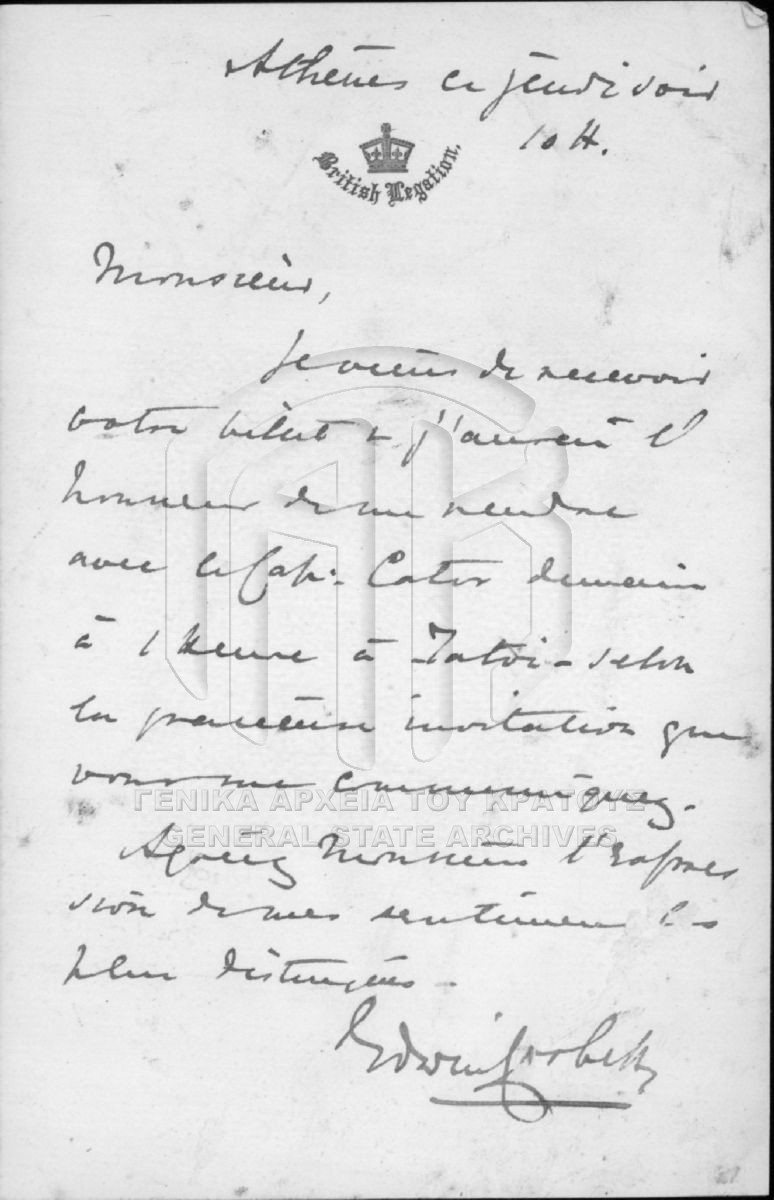 Athènes ce jeudi soir
10 H.
British Legation.
Monsieur,
Je viens de recevoir
votre billet & j'aurai l'
honneur de me rendre
avec le Cap: Cator demain
à 1 heure à Tatoi - selon
la gracieuse invitation que
vous me communiquez.
ΓΕΝΙΚΑ ΑΡΧΕΙΑ ΤΟΥ ΚΡΑΤΟΥΣ
GENERAL STATE ARCHIVES
Agréez Monsieur l'Expres
sion de mes sentimens les
plus distingués -
Edwin Corbett